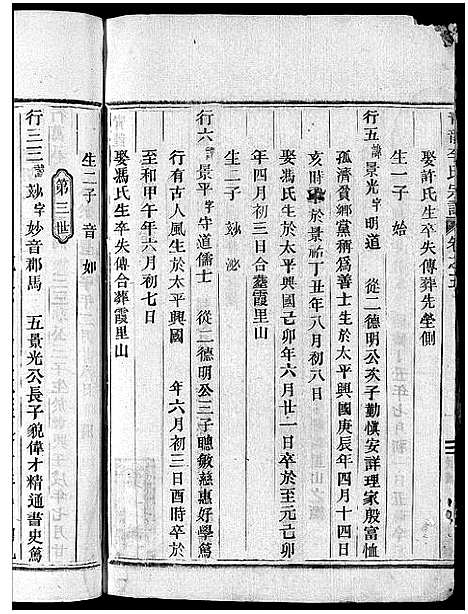 娶許氏生卒失傳葬先塋側
生一子 始
行五 諱景光字明道 從二德明公次子勤慎安詳理家殷富恤
孤濟貧鄉黨稱爲善士生於太平興國庚辰年四月十四日
亥時卒於景祐丁丑年八月初八日
娶馮氏生於太平興國己卯年六月廿一日卒於至元己卯
年四月初三日合塟霞里山
生二子 玅 泌
行六 諱景平字守道儒士 從二德明公三子聰敏慈惠好學篤
行有古人風生於太平興國 年六月初三日酉時卒於
至和甲午年六月初七日
娶馮氏生卒失傳合葬霞里山
生二子 音 如
第三世
行三三 諱玅字妙音郡馬 五景光公長子貌偉才精通書史篤